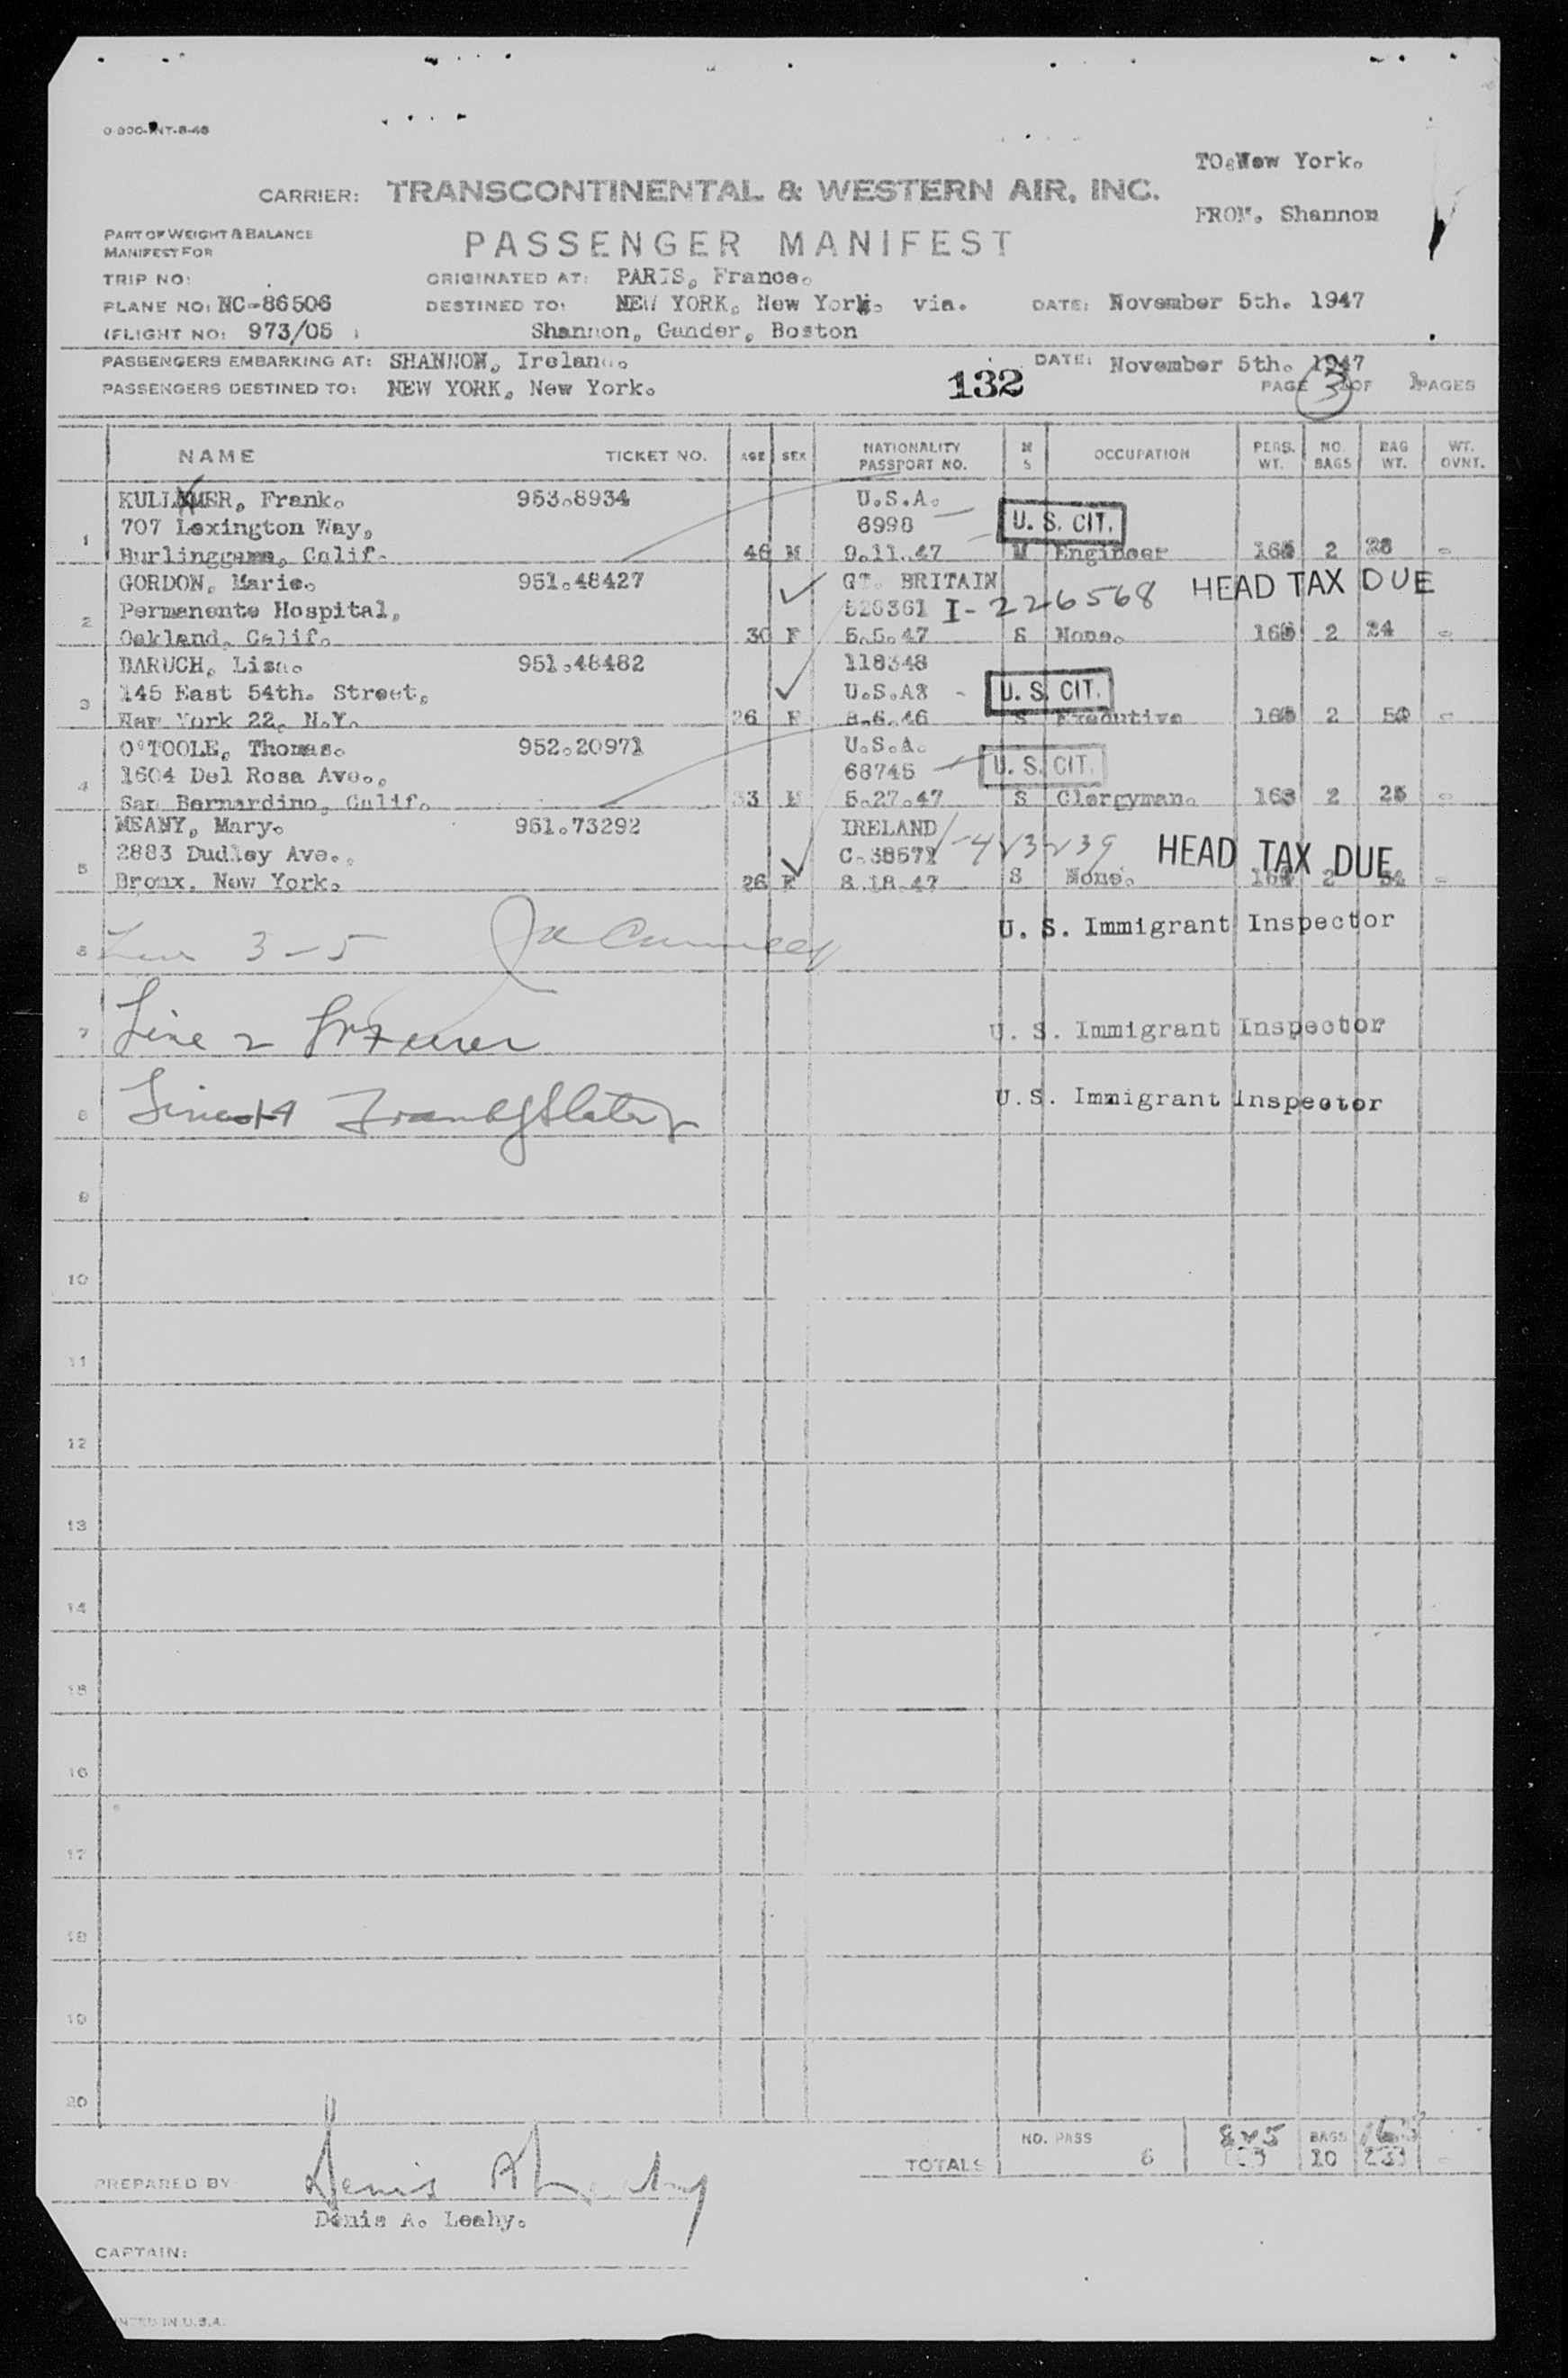 TO. New York.
CARRIER: TRANSCONTINENTAL & WESTERN AIR, INC.
FROM. Shannon
PART OF WEIGHT & BALANCE
MANIFEST FOR
PASSENGER MANIFEST
TRIP NO: ORIGINATED AT: PARIS, France.
PLANE NO: NC-86506 DESTINED TO: NEW YORK, New York. via. DATE: November 5th. 1947
(FLIGHT NO: 973/05 ) Shannon, Gander, Boston
PASSENGERS EMBARKING AT: SHANNON, Ireland. DATE: November 5th. 1947
PASSENGERS DESTINED TO: NEW YORK, New York. 132 PAGE 3 OF PAGES
NAME TICKET NO. AGE SEX NATIONALITY PASSPORT NO. M S OCCUPATION PERS. WT. NO. BAGS BAG WT. WT. OVNT.
KULLMER, Frank. 953.8934 U.S.A.
707 Lexington Way, 6998 U. S. CIT.
1 Burlinggame, Calif. 46 M 9.11.47 M Engineer 165 2 28 -
GORDON, Marie. 951.48427 GT. BRITAIN HEAD TAX DUE
2 Permanente Hospital, 526361 I-226568
Oakland, Calif. 30 F 5.5.47 S None. 165 2 24 -
BARUCH, Lisa. 951.48482 118348
3 145 East 54th. Street, U.S.A. - U. S. CIT.
New York 22, N.Y. 26 F 8.6.46 S Executive 165 2 50 -
O'TOOLE, Thomas. 952.20971 U.S.A.
4 1604 Del Rosa Ave., 68745 U. S. CIT.
San Bernardino, Calif. 33 M 5.27.47 S Clergyman. 163 2 25 -
MEANY, Mary. 951.73292 IRELAND
2883 Dudley Ave., C.38571 HEAD TAX DUE
5 Bronx, New York. 26 F 8.18.47 S None. 164 2 34 -
6 Line 3-5 U. S. Immigrant Inspector
7 Line 2 U. S. Immigrant Inspector
8 U.S. Immigrant Inspector
9
10
11
12
13
14
15
16
17
18
19
20
NO. PASS 825 BAGS
TOTALS 10
PREPARED BY Denis A Leahy
Denis A. Leahy.
CAPTAIN:
PRINTED IN U.S.A.